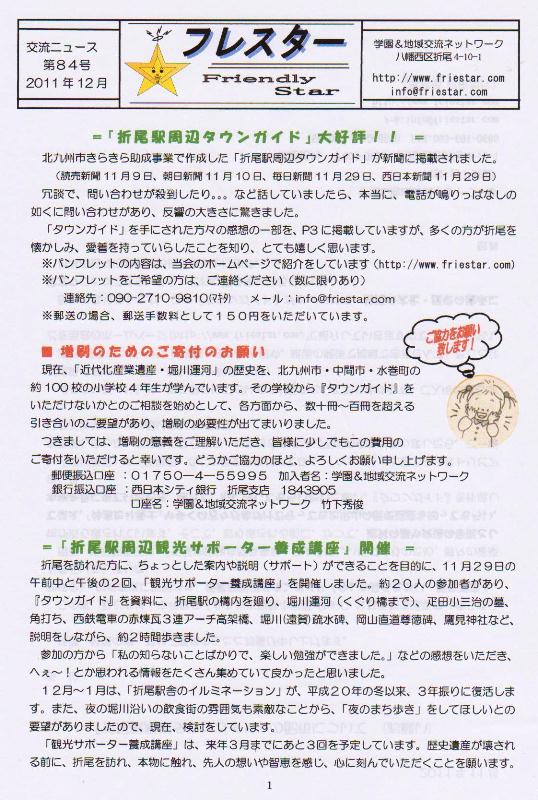 交流ニュース
第84号
2011年12月
フレスター
Friendly
Star
学園&地域交流ネットワーク
八幡西区折尾4-10-1
http://www.friestar.com
info@friestar.com
=「折尾駅周辺タウンガイド」大好評!! =
北九州市きらきら助成事業で作成した「折尾駅周辺タウンガイド」が新聞に掲載されました。
(読売新聞11月9日、朝日新聞11月10日、毎日新聞11月29日、西日本新聞11月29日)
冗談で、問い合わせが殺到したり。。。など話していましたら、本当に、電話が鳴りっぱなしの
如くに問い合わせがあり、反響の大きさに驚きました。
「タウンガイド」を手にされた方々の感想の一部を、P3に掲載していますが、多くの方が折尾を
懐かしみ、愛着を持っていらしたことを知り、とても嬉しく思います。
※パンフレットの内容は、当会のホームページで紹介をしています(http://www.friestar.com)
※パンフレットをご希望の方は、ご連絡ください(数に限りあり)
連絡先:090-2710-9810(マキタ) メール:info@friestar.com
※郵送の場合、郵送手数料として150円をいただいています。
ご協力をお願い
致します!
■ 増刷のためのご寄付のお願い
現在、「近代化産業遺産・堀川運河」の歴史を、北九州市・中間市・水巻町の
約100校の小学校4年生が学んでいます。その学校から『タウンガイド』を
いただけないかとのご相談を始めとして、各方面から、数十冊～百冊を超える
引き合いのご要望があり、増刷の必要性が出てまいりました。
つきましては、増刷の意義をご理解いただき、皆様に少しでもこの費用の
ご寄付をいただけると幸いです。どうかご協力のほど、よろしくお願い申し上げます。
郵便振込口座 :01750ー4ー55995 加入者名:学園&地域交流ネットワーク
銀行振込口座 :西日本シティ銀行 折尾支店 1843905
口座名:学園&地域交流ネットワーク 竹下秀俊
=「折尾駅周辺観光サポーター養成講座」開催
折尾を訪れた方に、ちょっとした案内や説明(サポート)ができることを目的に、11月29日の
午前中と午後の2回、「観光サポーター養成講座」を開催しました。約20人の参加者があり、
『タウンガイド』を資料に、折尾駅の構内を廻り、堀川運河(くぐり橋まで)、疋田小三治の墓、
角打ち、西鉄電車の赤煉瓦3連アーチ高架橋、堀川(遠賀)疏水碑、岡山直道尊徳碑、鷹見神社など、
説明をしながら、約2時間歩きました。
参加の方から「私の知らないことばかりで、楽しい勉強ができました。」などの感想をいただき、
へぇ～!とか思われる情報をたくさん集めていて良かったと思いました。
12月～1月は、「折尾駅舎のイルミネーション」が、平成20年の冬以来、3年振りに復活しま
す。また、夜の堀川沿いの飲食街の雰囲気も素敵なことから、「夜のまち歩き」をしてほしいとの
要望がありましたので、現在、検討をしています。
「観光サポーター養成講座」は、来年3月までにあと3回を予定しています。歴史遺産が壊され
る前に、折尾を訪れ、本物に触れ、先人の想いや智恵を感じ、心に刻んでいただくことを願います。
1